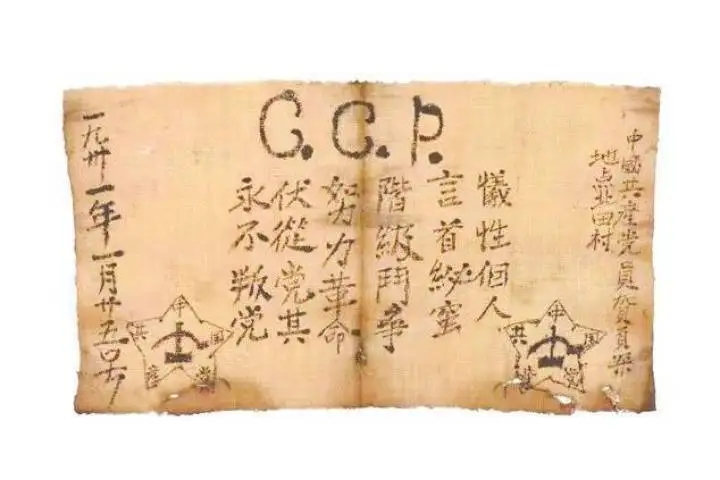 C.C.P.
中國共產党員賀頁朵
地点北田村
犧性個人
言首秘蜜
階級鬥爭
努力革命
伏從党其
永不叛党
一九卅一年一月廿五号
中国共產党
中国共產党